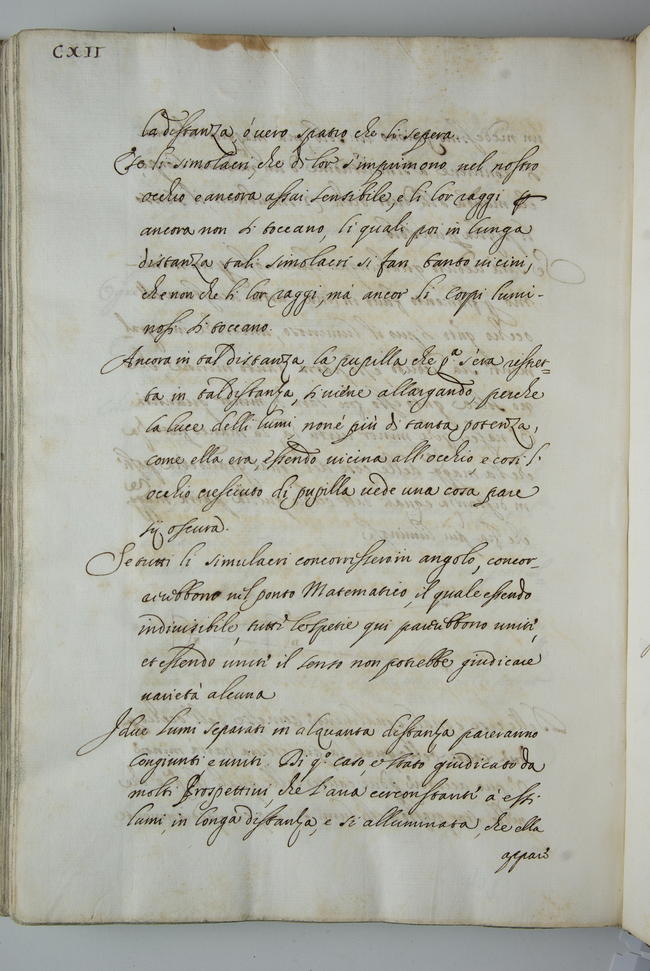 CXII
la distanza, ó vero spatio che li separa.
Et se li simolacri che di lor s'imprimono nel nostro
occhio e ancora assai sensibile, e li lor raggi
ancora non si toccano, li quali poi in lunga
distanza tali simolacri si fan tanto vicini,
che non che li lor raggi, má ancor li corpi lumi-
nosi si toccano.
Ancora in tal distanza, la pupilla che pª s'era restret-
ta in tal distanza, si viene allargando, perche
la luce delli lumi, non é piú di tanta potenza,
come ella era, essendo vicina all'occhio, e cosi l'
occhio cresciuto di pupilla vede una cosa pare
sij oscura.
Se tutti li simulacri concorressero in angolo, concor-
rerebbono nel ponto Matematico, il quale essendo
indivisibile, tutti le spetie qui parrebbono uniti,
et essendo uniti il senso non potrebbe giudicare
varietà alcuna
I due lumi separati in alquanta distanza pareranno
congiunti e uniti. Di qº caso, é stato giudicato da
molti Prospettivi, che l'aria circonstanti á essi
lumi, in longa distanza, e si alluminata, che ella
appari